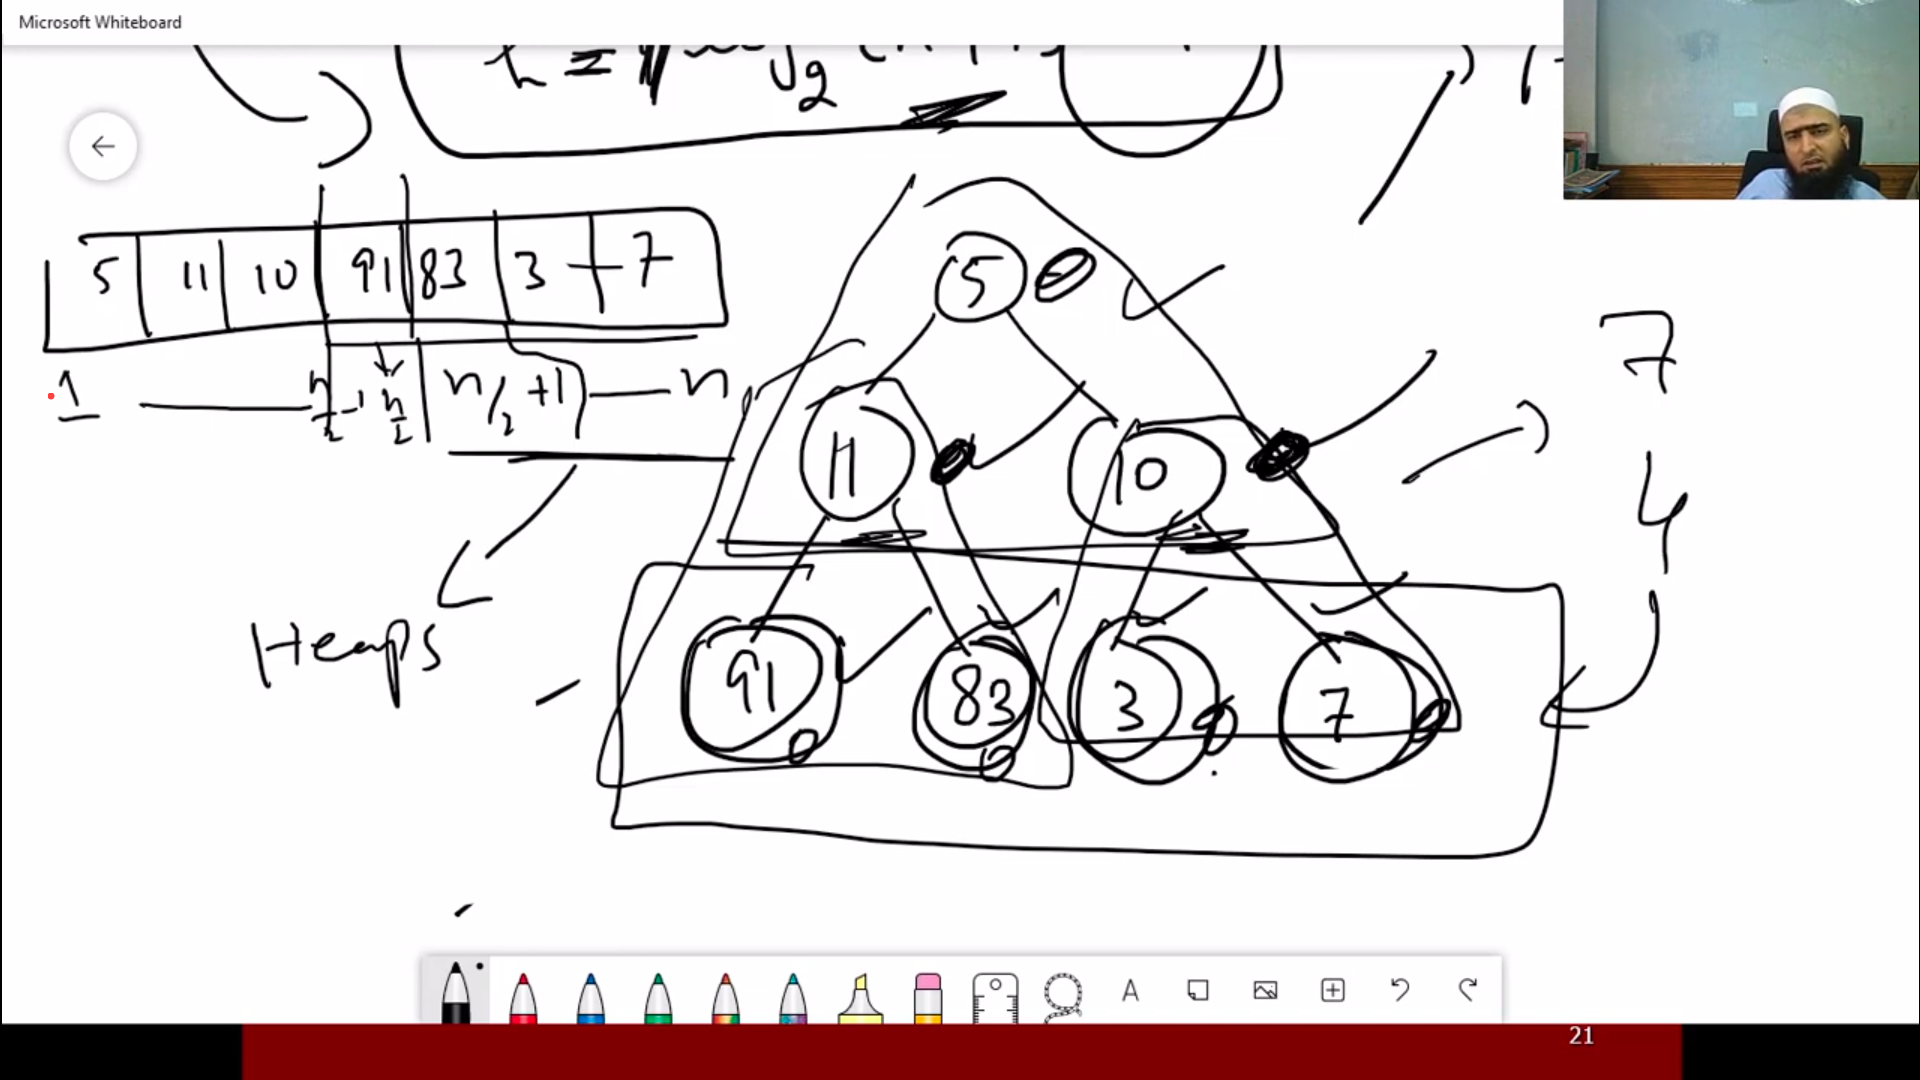 Microsoft Whiteboard
h =
5 11 10 91 83 3 7
1 n/2 -1 n/2 n/2 +1 n
Heaps
5
11 10
91 83 3 7
7
4
A
21